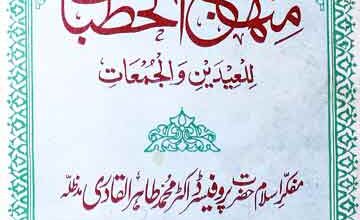 منہاج الخطبات
لِلعِيدَينِ وَالجُمُعَاتِ
مفکرِ اسلام حضرت پروفیسر ڈاکٹر محمد طاہر القادری مدظلہ